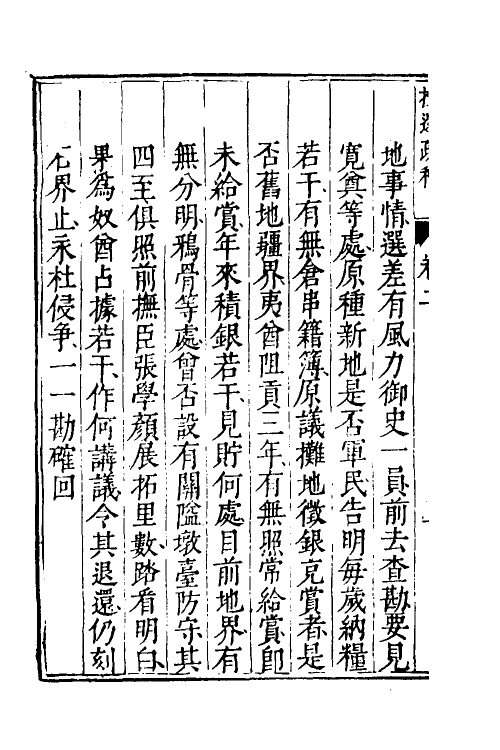 地事情選差有風力御史一員前去查勘要見
寬奠等處原種新地是否軍民告明每歲納糧
若干有無倉串籍簿原議攤地徵銀克賞者是
否舊地疆界夷酋阻貢三年有無照常給賞即
未給賞年來積銀若干見貯何處目前地界有
無分明鴉骨等處曾否設有關隘墩臺防守其
四至俱照前撫臣張學顏展拓里數踏看明白
果為奴酋占據若干作何講議令其退還仍刻
石界止永杜侵爭一一勘確回
卷二